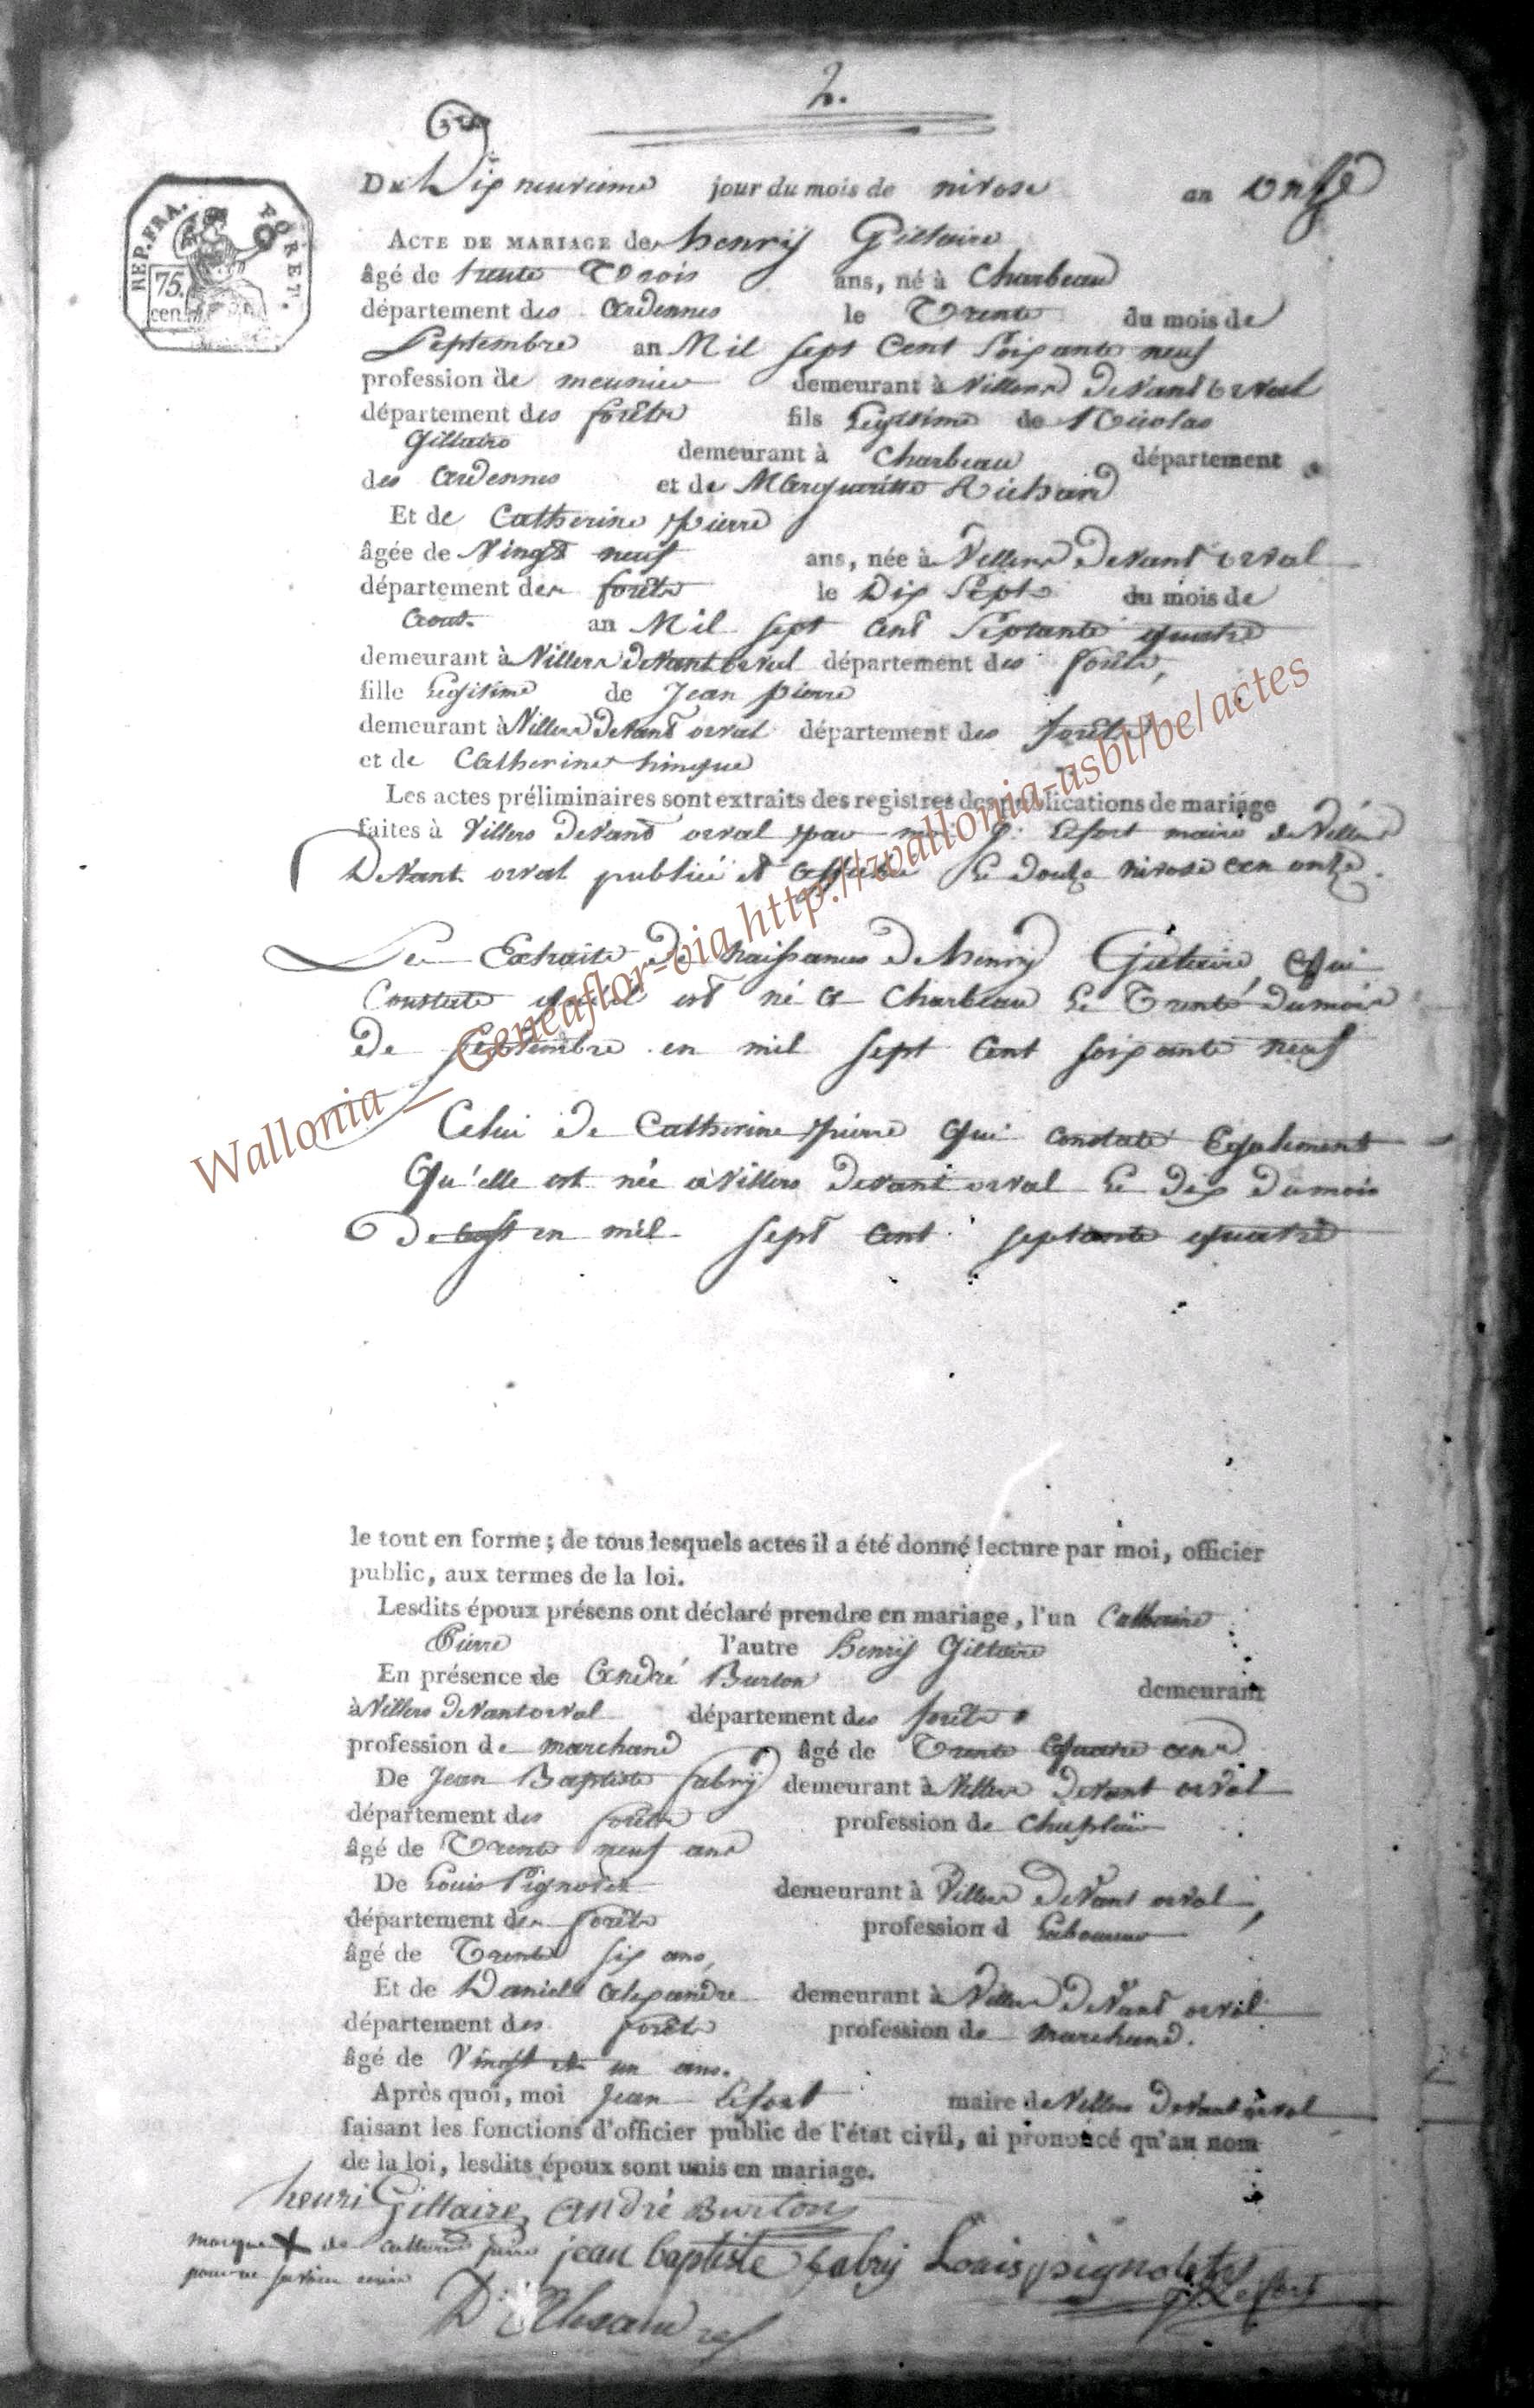 2.
REP. FRA. FORET.
75.
cen.
Du Dix neuvieme jour du mois de nivose an onze
ACTE DE MARIAGE de henrij Giltaire
âgé de trente Trois ans, né à Charbeau
département des Ardennes le Trente du mois de
Septembre an Mil sept Cent Soixante neuf
profession de meunier demeurant à Villers Devant orval
département des forêts fils Legitime de Nicolas
Giltaire demeurant à Charbeau département
des Ardennes et de Margueritte Richard
Et de Catherine pierre
âgée de Vingt neuf ans, née à Villers Devant orval
département des forêts le Dix Sept du mois de
Aout. an Mil sept Cent Septante quatre
demeurant à Villers Devant orval département des forêts,
fille Legitime de Jean pierre
demeurant à Villers Devant orval département des forêts
et de Catherine
Les actes préliminaires sont extraits des registres des publications de mariage
faites à Villers Devant orval par moi J. Lefort maire de Villers
Devant orval publiée et affichée Le Douze nivose an onze.
Les Extraits De Naissances De henrij Giltaire, Qui
Constate qu'il est né à Charbeau Le Trente Du mois
De Septembre en mil Sept Cent soixante neuf
Celui De Catherine pierre Qui constate Egalement
Qu'elle est née à Villers Devant orval Le Dix Du mois
D'aoust en mil sept cent septante quatre
le tout en forme ; de tous lesquels actes il a été donné lecture par moi, officier
public, aux termes de la loi.
Lesdits époux présens ont déclaré prendre en mariage, l'un Catherine
Pierre l'autre Henrij Giltaire
En présence de André Burton demeurant
à Villers Devant orval département des forêts
profession de marchand âgé de Trente Quatre ans
De Jean Baptiste fabrij demeurant à Villers Devant orval
département des forêts profession de Chaplain
âgé de Trente neuf ans
De Louis Pignolet demeurant à Villers Devant orval,
département des forêts profession d Laboureur
âgé de Trente six ans,
Et de Daniel alexandre demeurant à Villers Devant orval
département des forêts profession de marchand.
âgé de Vingt et un ans.
Après quoi, moi Jean Lefort maire de Villers Devant orval
faisant les fonctions d'officier public de l'état civil, ai prononcé qu'au nom
de la loi, lesdits époux sont unis en mariage.
henri Giltaire André Burton
marque + de Catherine pierre jean baptiste fabrij Louis pignolet
pour ne savoir ecrire J. Lefort
D Alexandre
Wallonia _ Geneaflor-via http://wallonia-asbl/be/actes